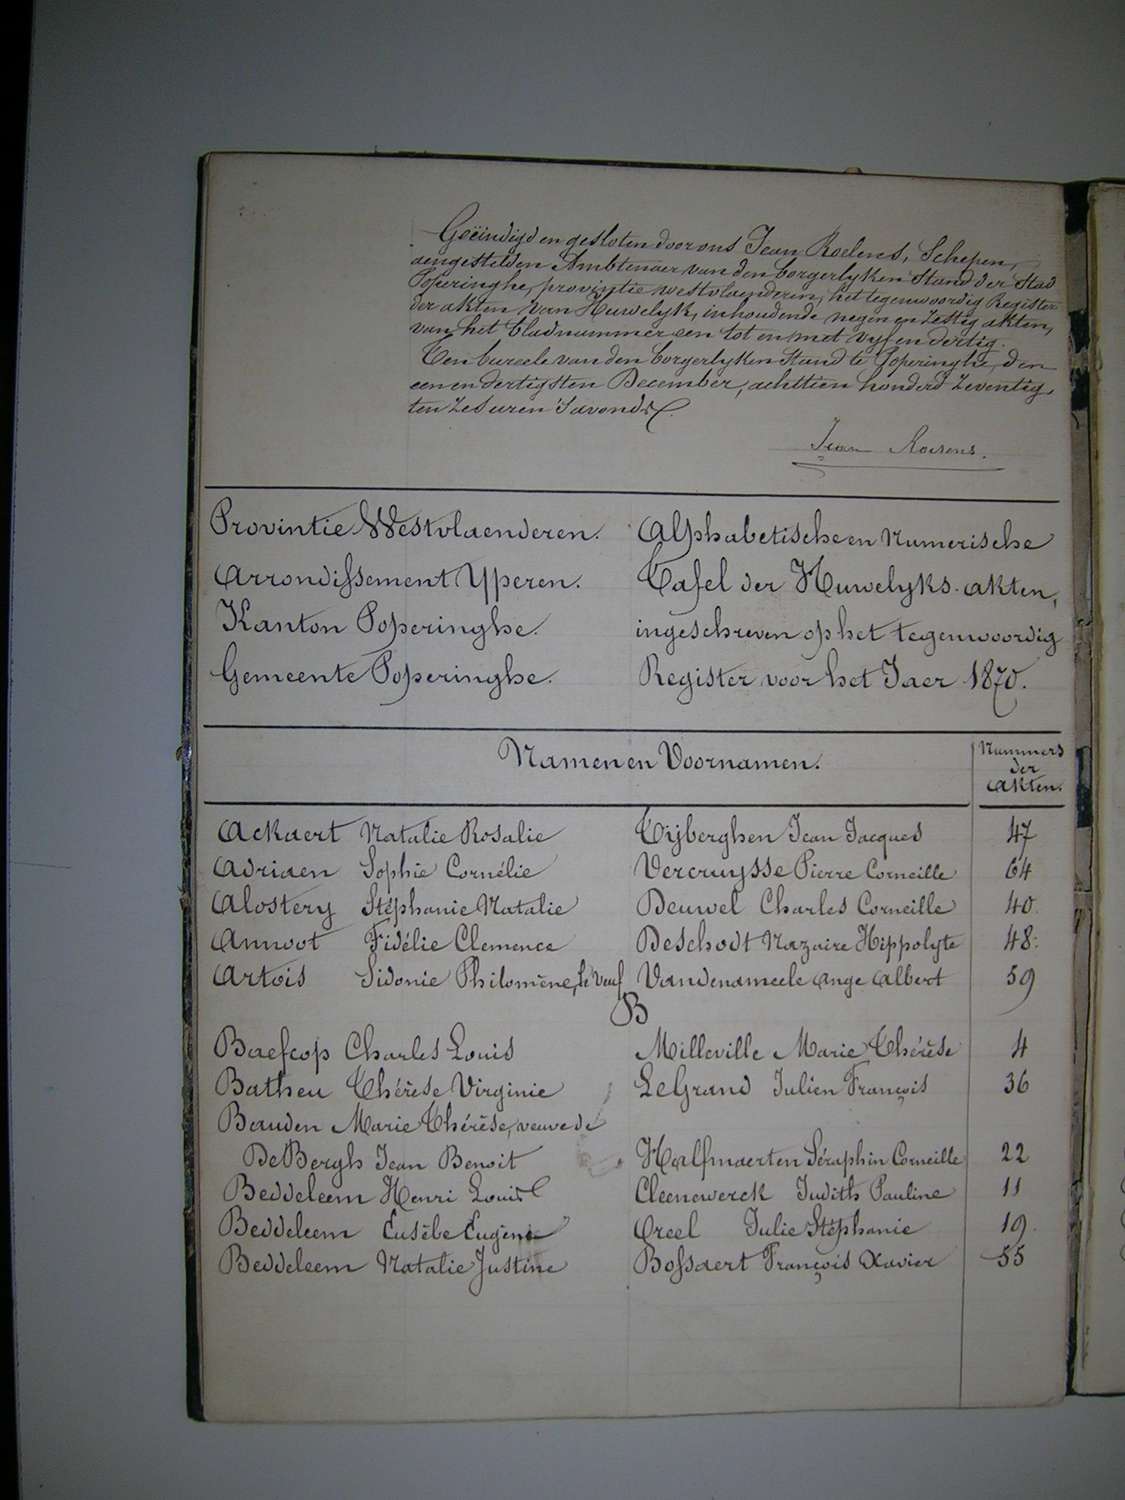 Geëindigd en gesloten door ons Jean Roelens, Schepen,
aengestelden Ambtenaer van den borgerlyken Stand der Stad
Poperinghe, provintie westvlaenderen, het tegenwoordig Register
der akten van Huwelyk, inhoudende negen en zestig akten,
van het bladnummer een tot en met vyf en dertig.
Ten bureele van den borgerlyken Stand te Poperinghe, den
een en dertigsten December, achttien honderd zeventig,
ten zes uren 's avonds
Jean Roelens.
Provintie Westvlaenderen.
Arrondissement Yperen.
Kanton Poperinghe.
Gemeente Poperinghe.
Alphabetische en Numerische
Tafel der Huwelyks-akten,
ingeschreven op het tegenwoordig
Register voor het Jaer 1870.
Namen en Voornamen.
Nummers
der
akten.
Ackaert Natalie Rosalie Tyberghen Jean Jacques 47
Adriaen Sophie Cornélie Vercruysse Pierre Corneille 64
Alostery Stéphanie Natalie Deuwel Charles Corneille 40
Annoot Fidélie Clemence Deschodt Nazaire Hippolyte 48
Artois Sidonie Philomène, Vandenameele Ange Albert 59
B
Baefcop Charles Louis Milleville Marie Thérèse 4
Batheu Thérèse Virginie LeGrand Julien François 36
Bauden Marie Thérèse, veuve de
DeBergh Jean Benoit Halfmaerten Séraphin Corneille 22
Beddeleem Henri Louis Cleenewerck Judith Pauline 11
Beddeleem Eusèbe Eugène Creel Julie Stéphanie 19
Beddeleem Natalie Justine Bossaert François Xavier 55